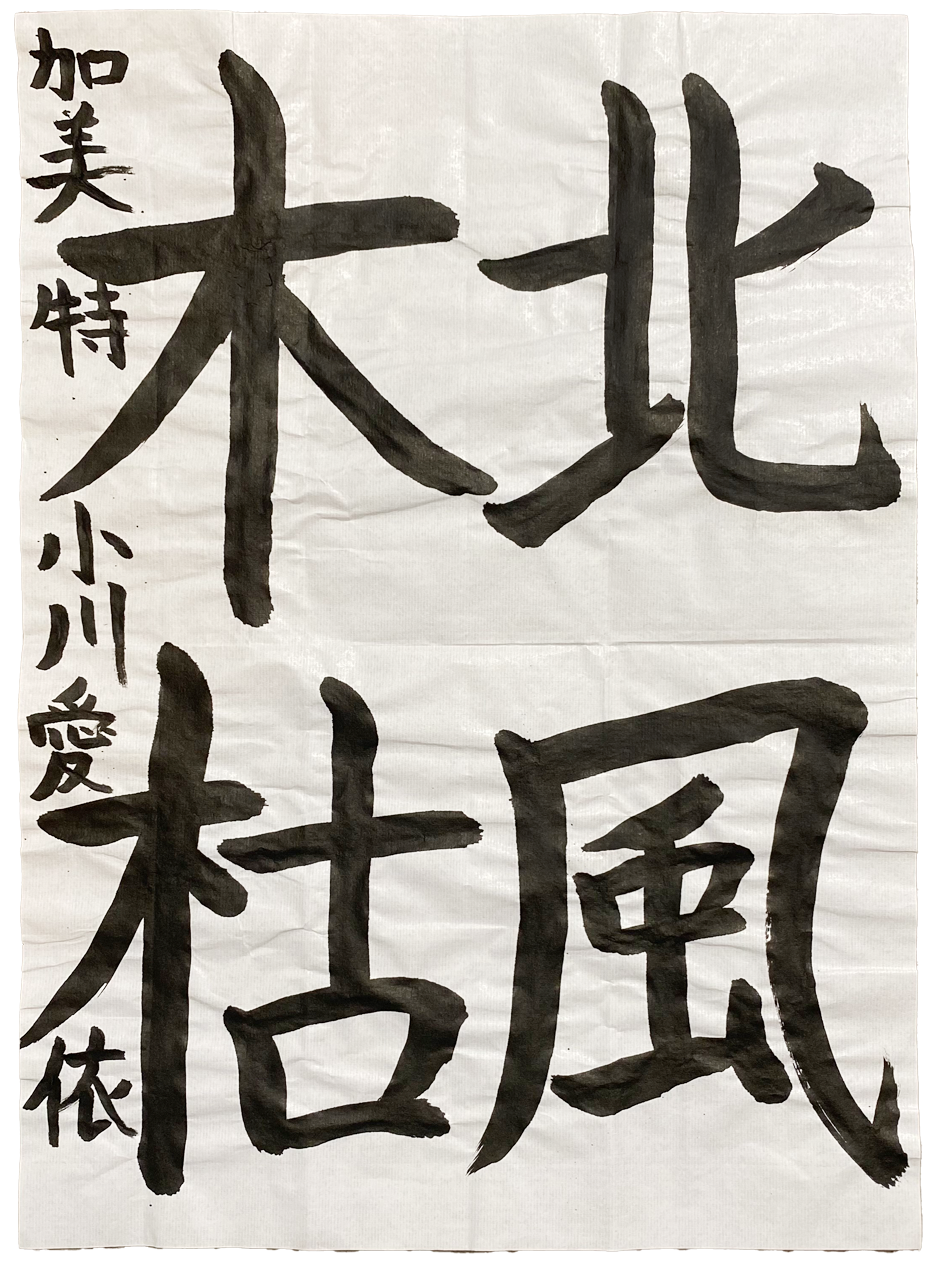 北風
木枯
加美 特 小川愛依